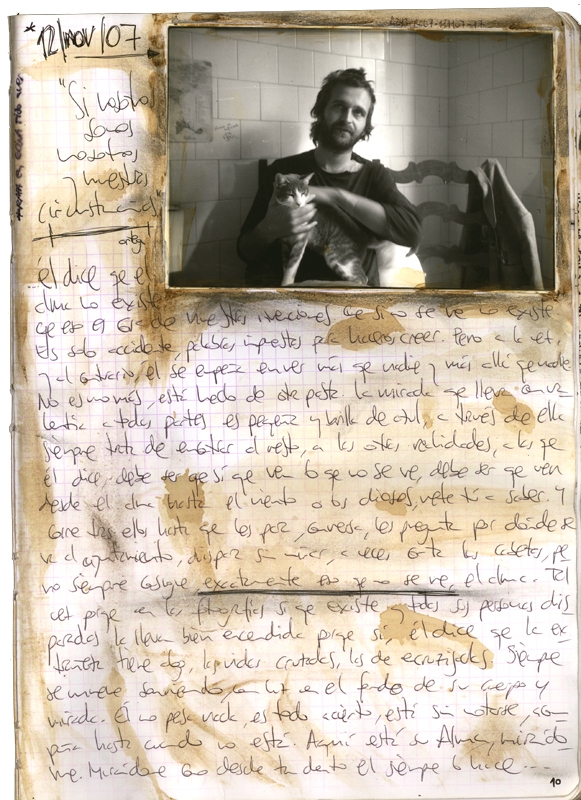 * 12/NOV/07
"Si
somos
nosotros
y nuestras
circunstancias"
ortega
él dice que el
alma no existe
que es el de nuestras que si no se ve no existe
Es solo accidente, palabras impuestas para hacernos creer. Pero a la vez,
y al contrario, él se empeña en ver más que nadie y más allá que nadie
No es no más, está hecho de otra pasta. la mirada que lleva
a todas partes es pequeña y brilla de azul, a través de ella
siempre trata de encontrar al resto, a las otras realidades, a las que
él dice, debe ser que sí que ven lo que no se ve, debe ser que ven
desde el alma hasta el viento o los dioses, vete tú a saber. Y
corre tras ellos hasta que les para, conversa, les pregunta por dónde se
va al ayuntamiento, dispara sin mirar, a veces corta las cabezas, pe
ro siempre consigue exactamente eso que no se ve, el alma. Tal
vez porque en las fotografías si que existe y todas sus personas dis
paradas la llevan bien escondida porque sí, él dice que la ex
tiene algo, las vidas cruzadas, las de encrucijadas. Siempre
se mueve luz en el fondo de su cuerpo y
mirada. Él no pesa nada, es todo acierto, está sin notarse, acom
paña hasta cuando no está. Aquí está su Alma, mirándo
me. Mirándome como desde tan dentro él siempre lo hace...
10